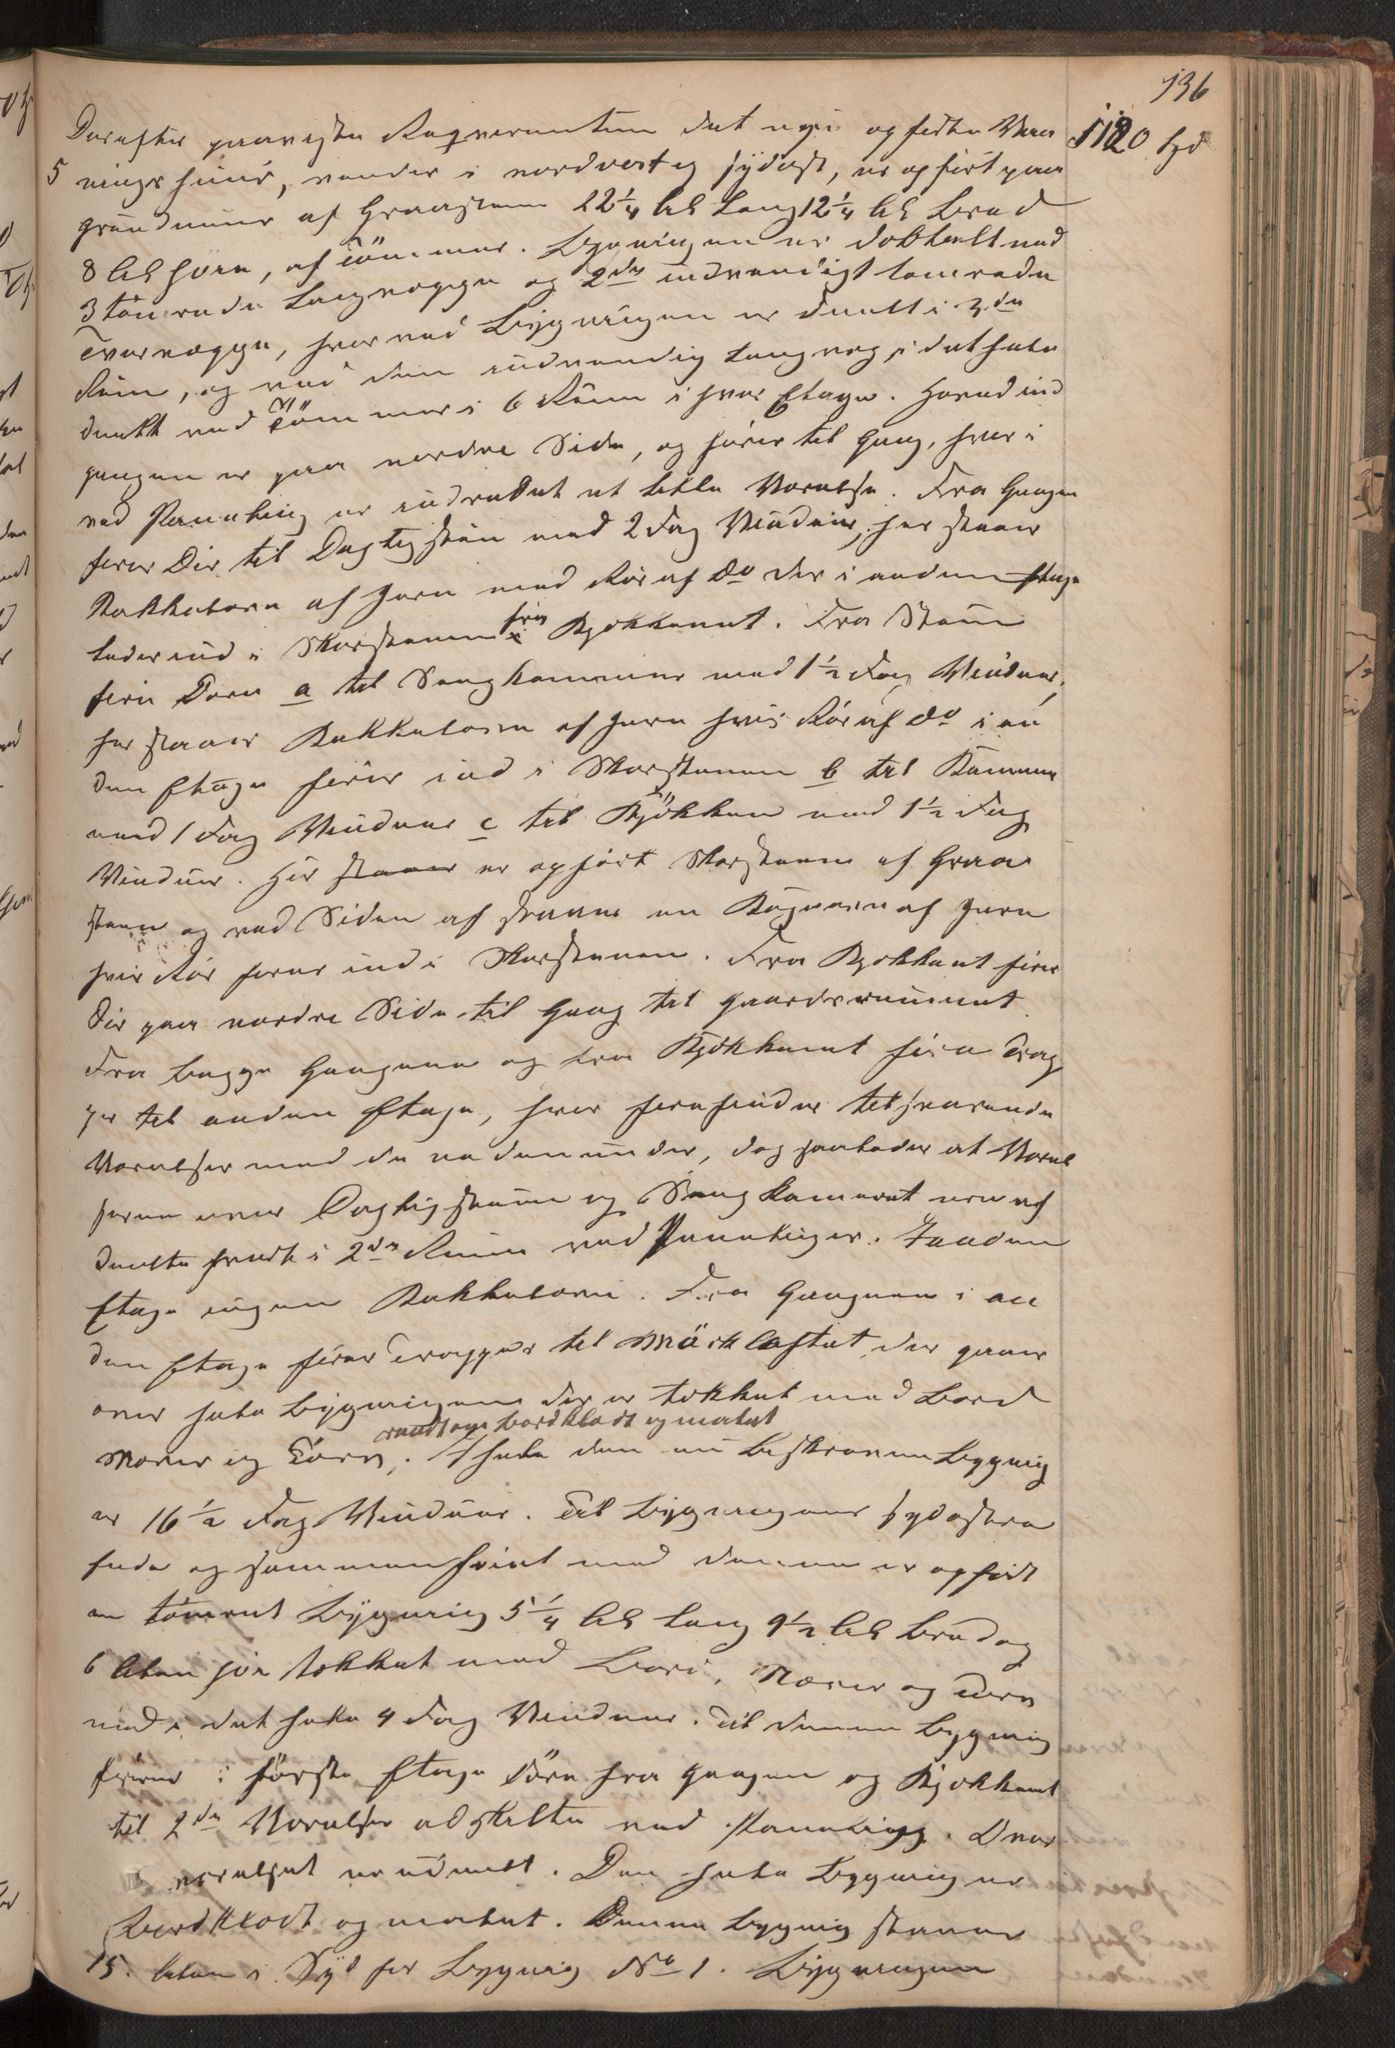 136
Derefter paaviste Reqvirenten det nye opførte Vaa 1120 Spd
5 ningshuus, vender i nordvest og sydøst, er opført paa
grundmuur af Graasteen 22 1/4 Al lang 12 1/4 Al bred
8 Al høie, af Tømmer. Bygningen er dobbelt med
3 tømrede Langvægge og 2de indvendigt tømrede
Tvervægge, hvorved Bygningen er deelt i 3de
Rum, og ved den indvendig Langvæg i det hele
deelt ved Tømmer i 6 Rum i hver Etage. Hovedind
gangen er paa nordre Side, og fører til Gang, hvor i
ved Paneling er indredet et lidet Værelse. Fra Gangen
fører Dør til Dagligstue med 2 Fag Vinduer, her staaer
Kakkelovn af Jern med Rør af do der i anden Etage
leder ind i Skorstenen fra Kjøkkenet. Fra Stuen
føre Døre a til Sengkammer med 1 1/2 Fag Vinduer,
her staaer Kakkelovn af Jern hvis Rør af do i an
den Etage fører ind i Skorstenen b til Kammer
med 1 Fag Vinduer c til Kjøkken med 1 1/2 Fag
Vinduer. Her staaer er opført Skorsteen af Graa
steen og ved Siden af staaer en Kogeovn af Jern
hvis Rør fører ind i Skorstenen. Fra Kjøkkenet fører
Dør paa nordre Side til Gang til gaardsrummet.
Fra begge Gangene og fra Kjøkkenet føre Trap
per til anden Etage, hvor forefindes tilsvarende
Værelser med de nedenunder, dog saaledes at Værel
serne over Dagligstuen og Sengkammeret ere af
deelte hvert i 2de Rum ved Paneliger. I anden
Etage ingen Kakkelovne. Fra Gangene i an
den Etage fører Trapper til Mørkloftet, der gaaer
over hele Bygningen der er tækket med Bord
rundt om bordklædt og malet
Næver og Törv. I hele den nu beskrevne Bygnig
er 16 1/2 Fag Vinduer. Til Bygningens sydøstre
Ende og sammenføiet med denne er opført
en tømret Bygning 5 1/4 Al lang 9 1/2 Al bred og
6 Alen høi tækket med Bord, Næver og Törv
med i det hele 4 Fag Vinduer. Til denne Bygnig
fører i første Etage Döre fra gangen og Kjøkkenet
til 2de Værelser adskilte ved Paneligg. Over
værelset er umalt. Den hele Bygnig er
Bordklædt og malet. Denne Bygnig staaer
15. Alen i Syd for Bygnig No 1. Bygningen